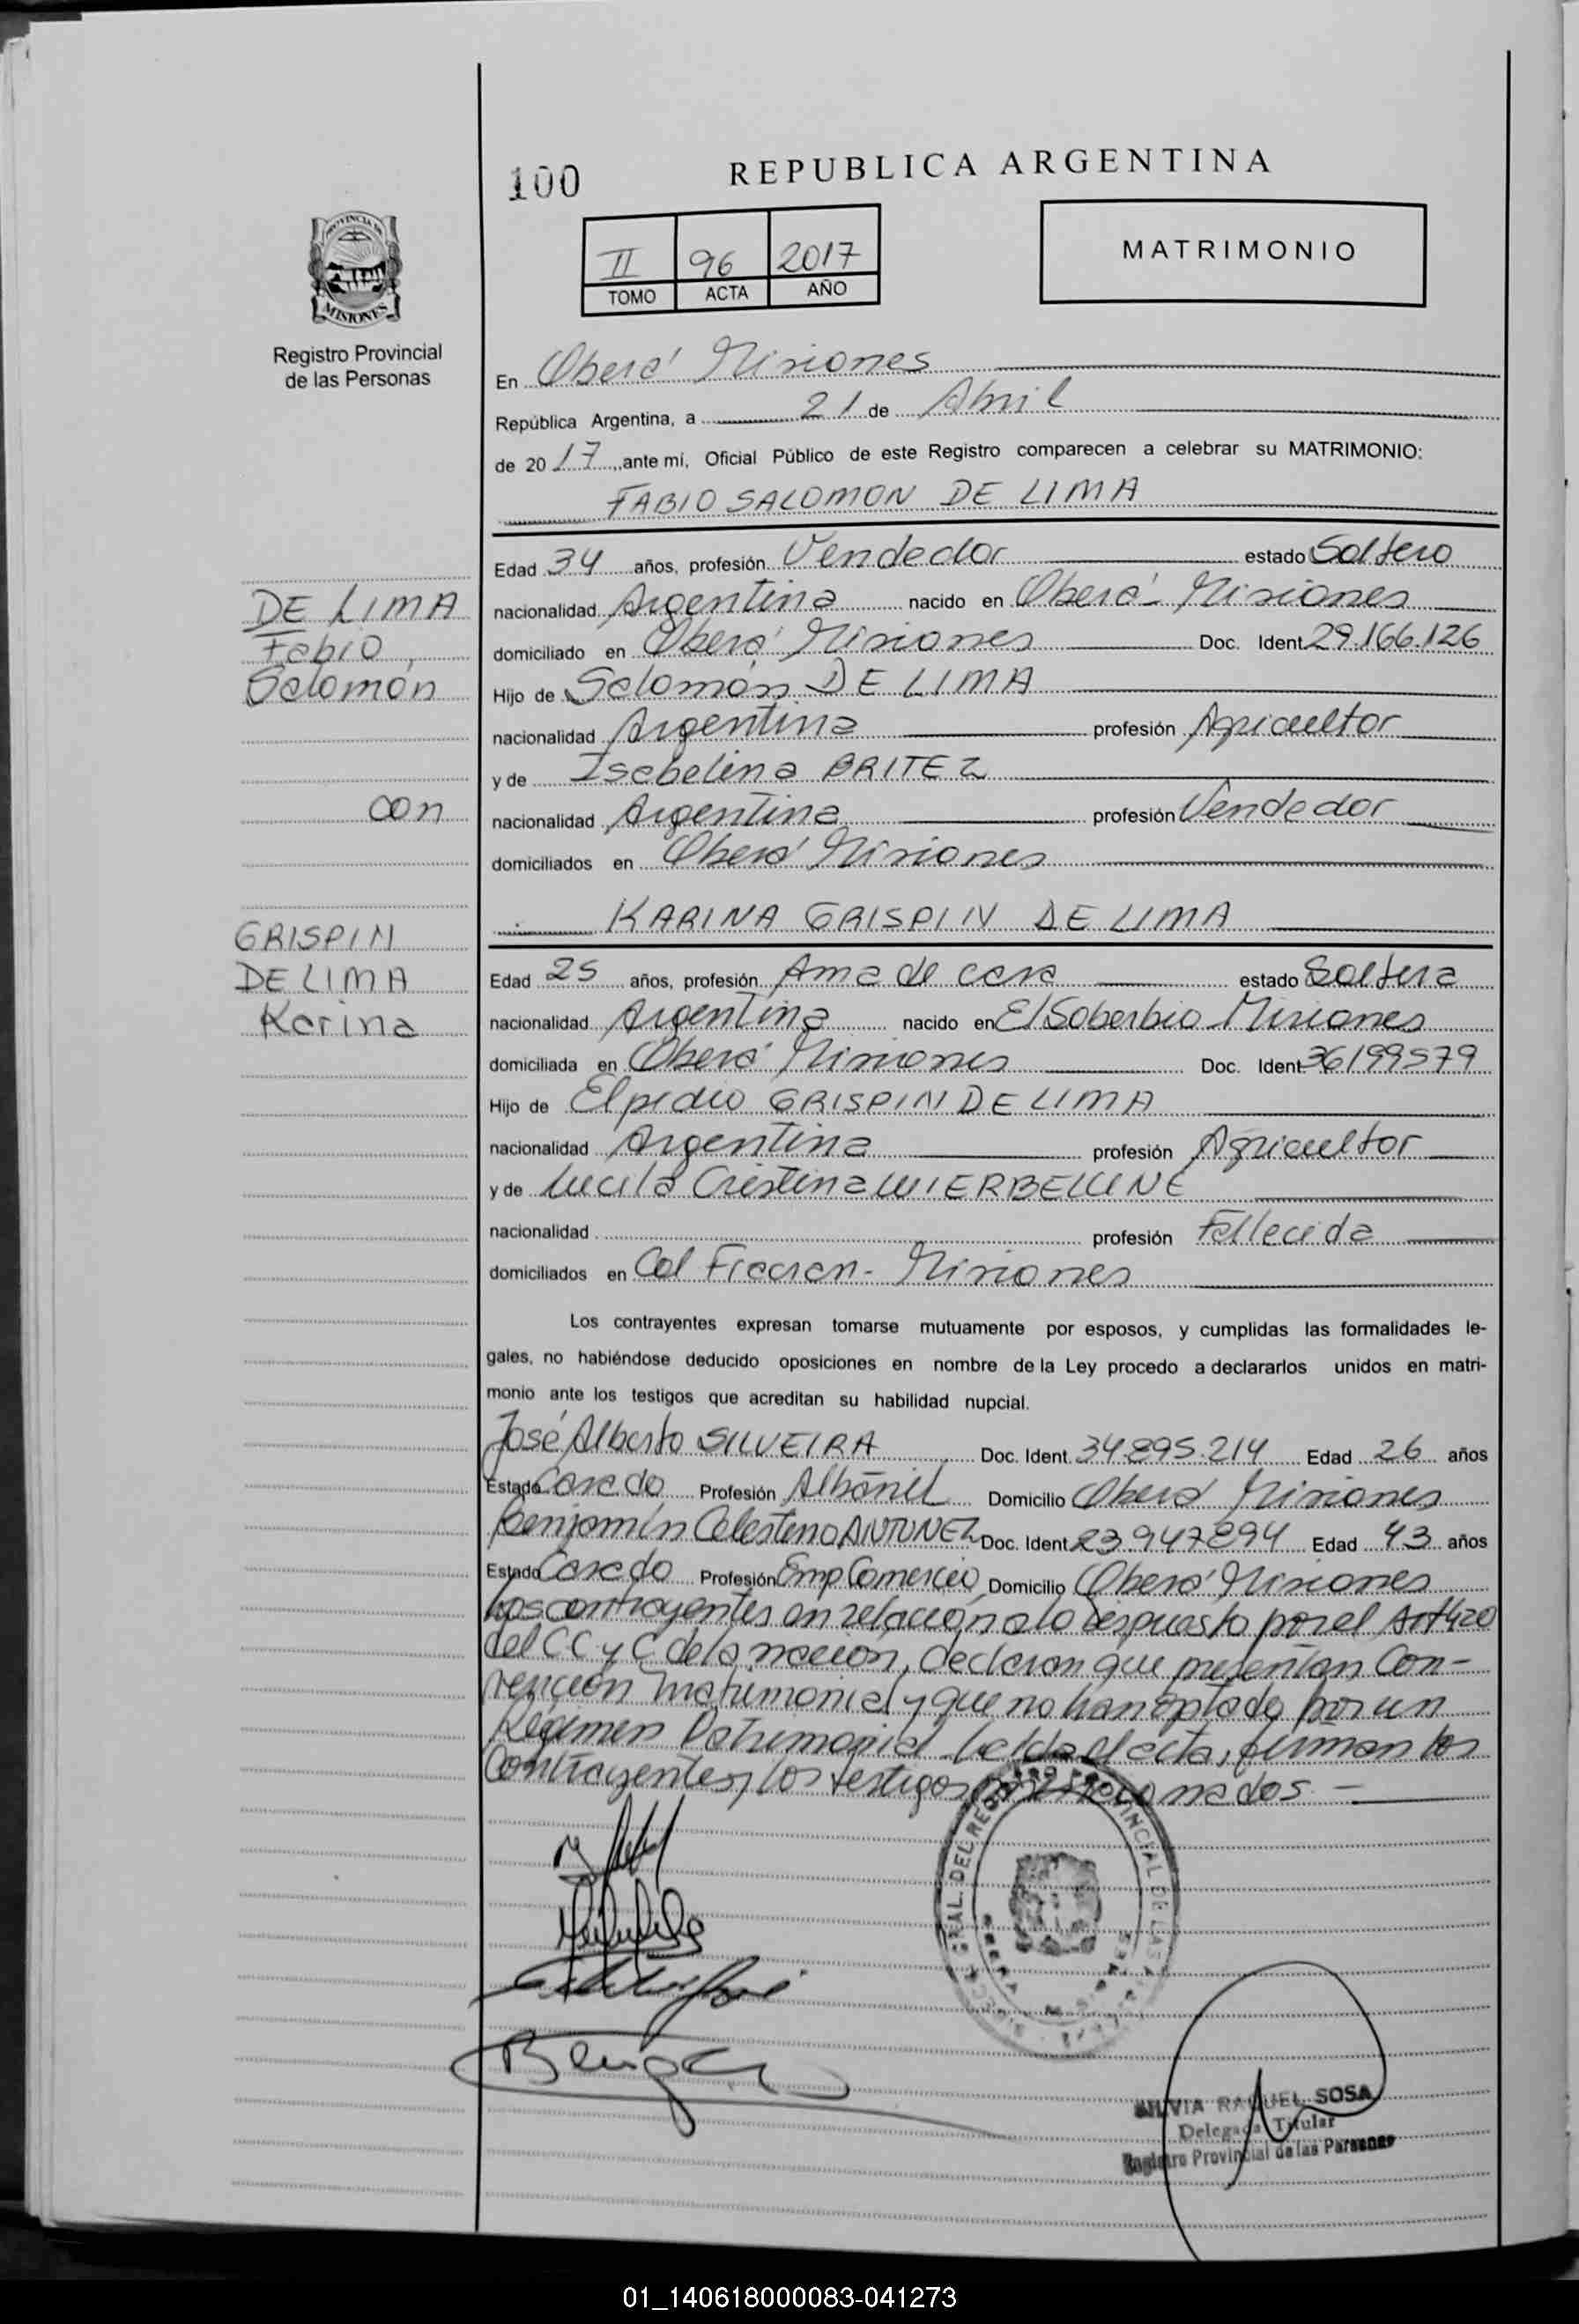 100
REPUBLICA ARGENTINA
PROVINCIA DE
MISIONES
Registro Provincial
de las Personas
II 96 2017
TOMO ACTA AÑO
MATRIMONIO
En Oberá Misiones
República Argentina, a 21 de Abril
de 20 17 ante mí, Oficial Público de este Registro comparecen a celebrar su MATRIMONIO:
FABIO SALOMON DE LIMA
Edad 34 años, profesión Vendedor estado Soltero
DE LIMA
Fabio
Salomón
nacionalidad Argentina nacido en Oberá - Misiones
domiciliado en Oberá Misiones Doc. Ident. 29.166.126
Hijo de Salomón DE LIMA
nacionalidad Argentina profesión Agricultor
y de Isabelina BRITEZ
con
nacionalidad Argentina profesión Vendedor
domiciliados en Oberá Misiones
KARINA GRISPIN DE LIMA
GRISPIN
DE LIMA
Karina
Edad 25 años, profesión Ama de casa estado Soltera
nacionalidad Argentina nacido en El Soberbio Misiones
domiciliada en Oberá Misiones Doc. Ident 36199579
Hijo de Elpidio GRISPIN DE LIMA
nacionalidad Argentina profesión Agricultor
y de Lucila Cristina
nacionalidad profesión Fallecida
domiciliados en Col Fracran - Misiones
Los contrayentes expresan tomarse mutuamente por esposos, y cumplidas las formalidades le-
gales, no habiéndose deducido oposiciones en nombre de la Ley procedo a declararlos unidos en matri-
monio ante los testigos que acreditan su habilidad nupcial.
José Alberto SILVEIRA Doc. Ident. 34.895.214 Edad 26 años
Estado Casado Profesión Albañil Domicilio Oberá Misiones
Benjamín Celestino ANTUNEZ Doc. Ident 23.947894 Edad 43 años
Estado Casado Profesión Emp Comercio Domicilio Oberá Misiones
Los contrayentes en relación a lo despuesto por el Art 420
del CC y C de la nación, declaran que presentan Con-
vención matrimonial y que no han optado por un
Régimen Patrimonial Leída el acta, firman los
Contrayentes y los testigos mencionados. -
SILVIA RAQUEL SOSA
Delegada Titular
Registro Provincial de las Personas
01_140618000083-041273